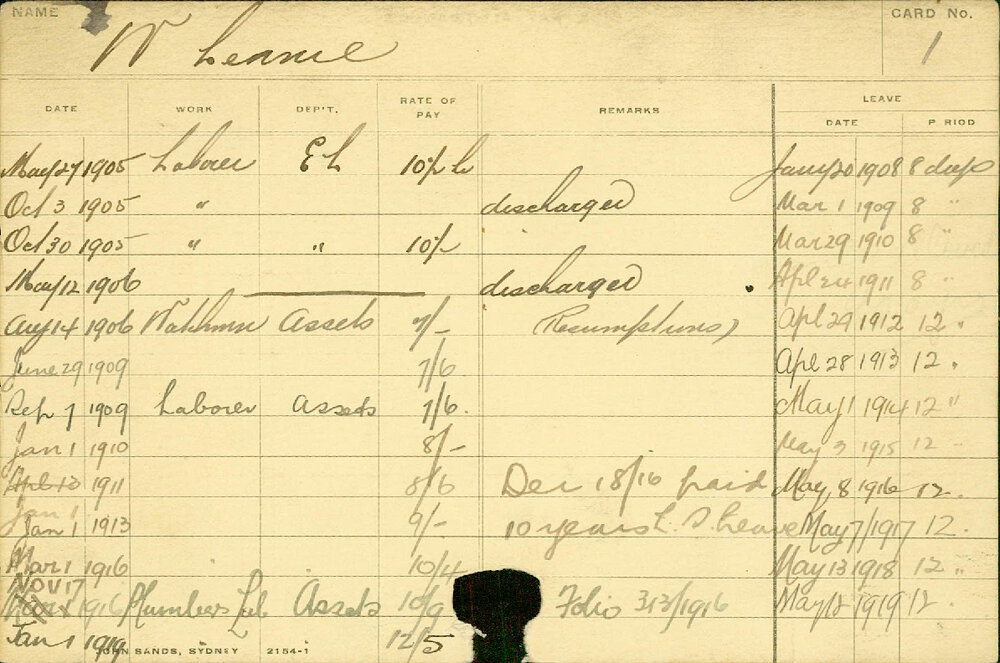 NAME CARD No.
W Leanie 1
LEAVE
DATE WORK DEP'T. RATE OF PAY REMARKS DATE P RIOD
May 27 1905 Laborer EL 10½ h Jany 20 1908 8 days
Oct 3 1905 " discharged Mar 1 1909 8 "
Oct 30 1905 " " 10½ Mar 29 1910 8 "
May 12 1906 discharged Apl 24 1911 8 "
Aug 14 1906 Watchman Assets 7/- (Resumptions) Apl 29 1912 12 "
June 29 1909 7/6 Apl 28 1913 12 "
Sep 7 1909 Laborer Assets 7/6 May 1 1914 12 "
Jan 1 1910 8/- May 3 1915 12 "
1911 8/6 Dec 18/16 paid May 8 1916 12 "
Jan 1
Jan 1 1913 9/- 10 years L. S. Leave May 7/1917 12 "
Mar 1 1916 10/4 May 13 1918 12 "
NOV 17
1916 Plumbers Assets 10/9 Folio 313/1916 May 12 1919 12 "
Jan 1 1919 12/5
JOHN SANDS, SYDNEY 2154-1